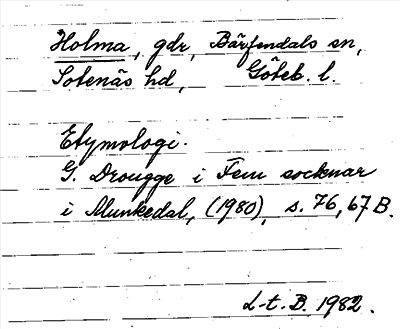 Holma, gdr, Bärfendals sn,
Sotenäs hd, Göteb. l.
Etymologi.
G. Drougge i Fem socknar
i Munkedal, (1980), s. 76, 67 B.
L-t. B. 1982.